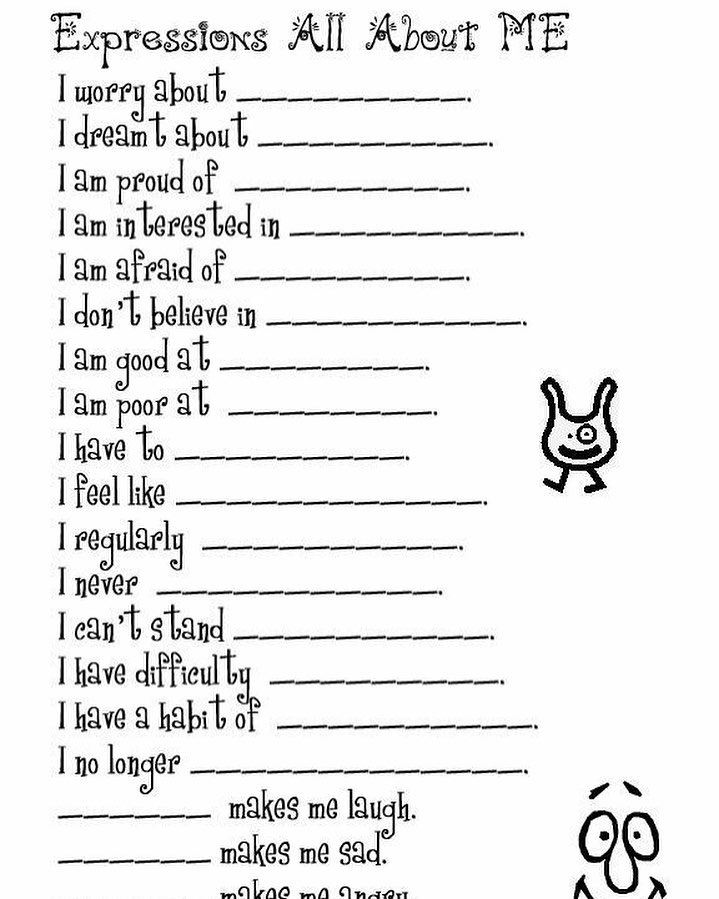 Expressions All About ME
I worry about __________.
I dreamt about __________.
I am proud of __________.
I am interested in __________.
I am afraid of __________.
I don't believe in __________.
I am good at ________.
I am poor at ________.
I have to _________.
I feel like ____________.
I regularly __________.
I never ___________.
I can't stand __________.
I have difficulty _________.
I have a habit of __________.
I no longer _____________.
______ makes me laugh.
______ makes me sad.
______ makes me angry.